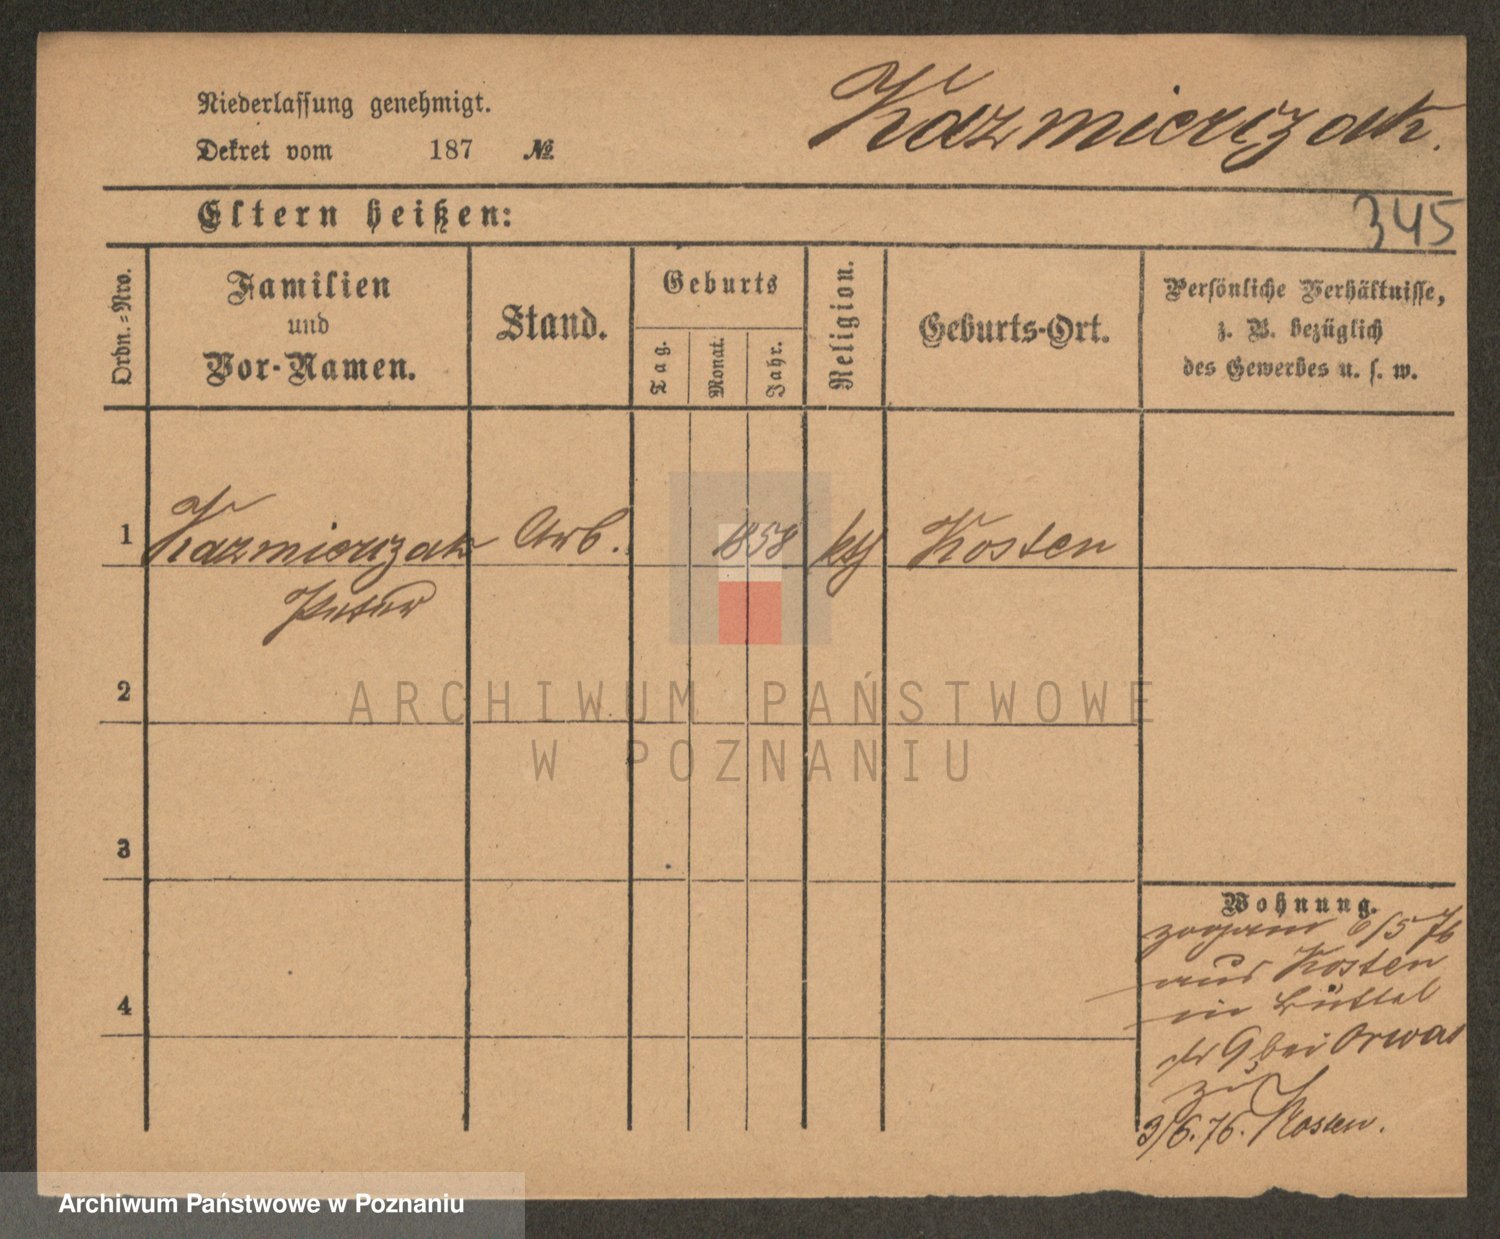 Niederlassung genehmigt.
Kazmierczak.
Dekret vom 187 №
Eltern heißen:
345
Ordn.-Nro.
Familien
und
Vor-Namen.
Stand.
Geburts
Tag.
Monat.
Jahr.
Religion.
Geburts-Ort.
Persönliche Verhältnisse,
z. B. bezüglich
des Gewerbes u. s. w.
1 Kazmierczak Arb. 1858 kth Kosten
Peter
2
3
4
Wohnung.
6/5 76
aus Kosten
in
9 bei
zu
3/6. 76. Kosten.
ARCHIWUM PAŃSTWOWE
W POZNANIU
Archiwum Państwowe w Poznaniu